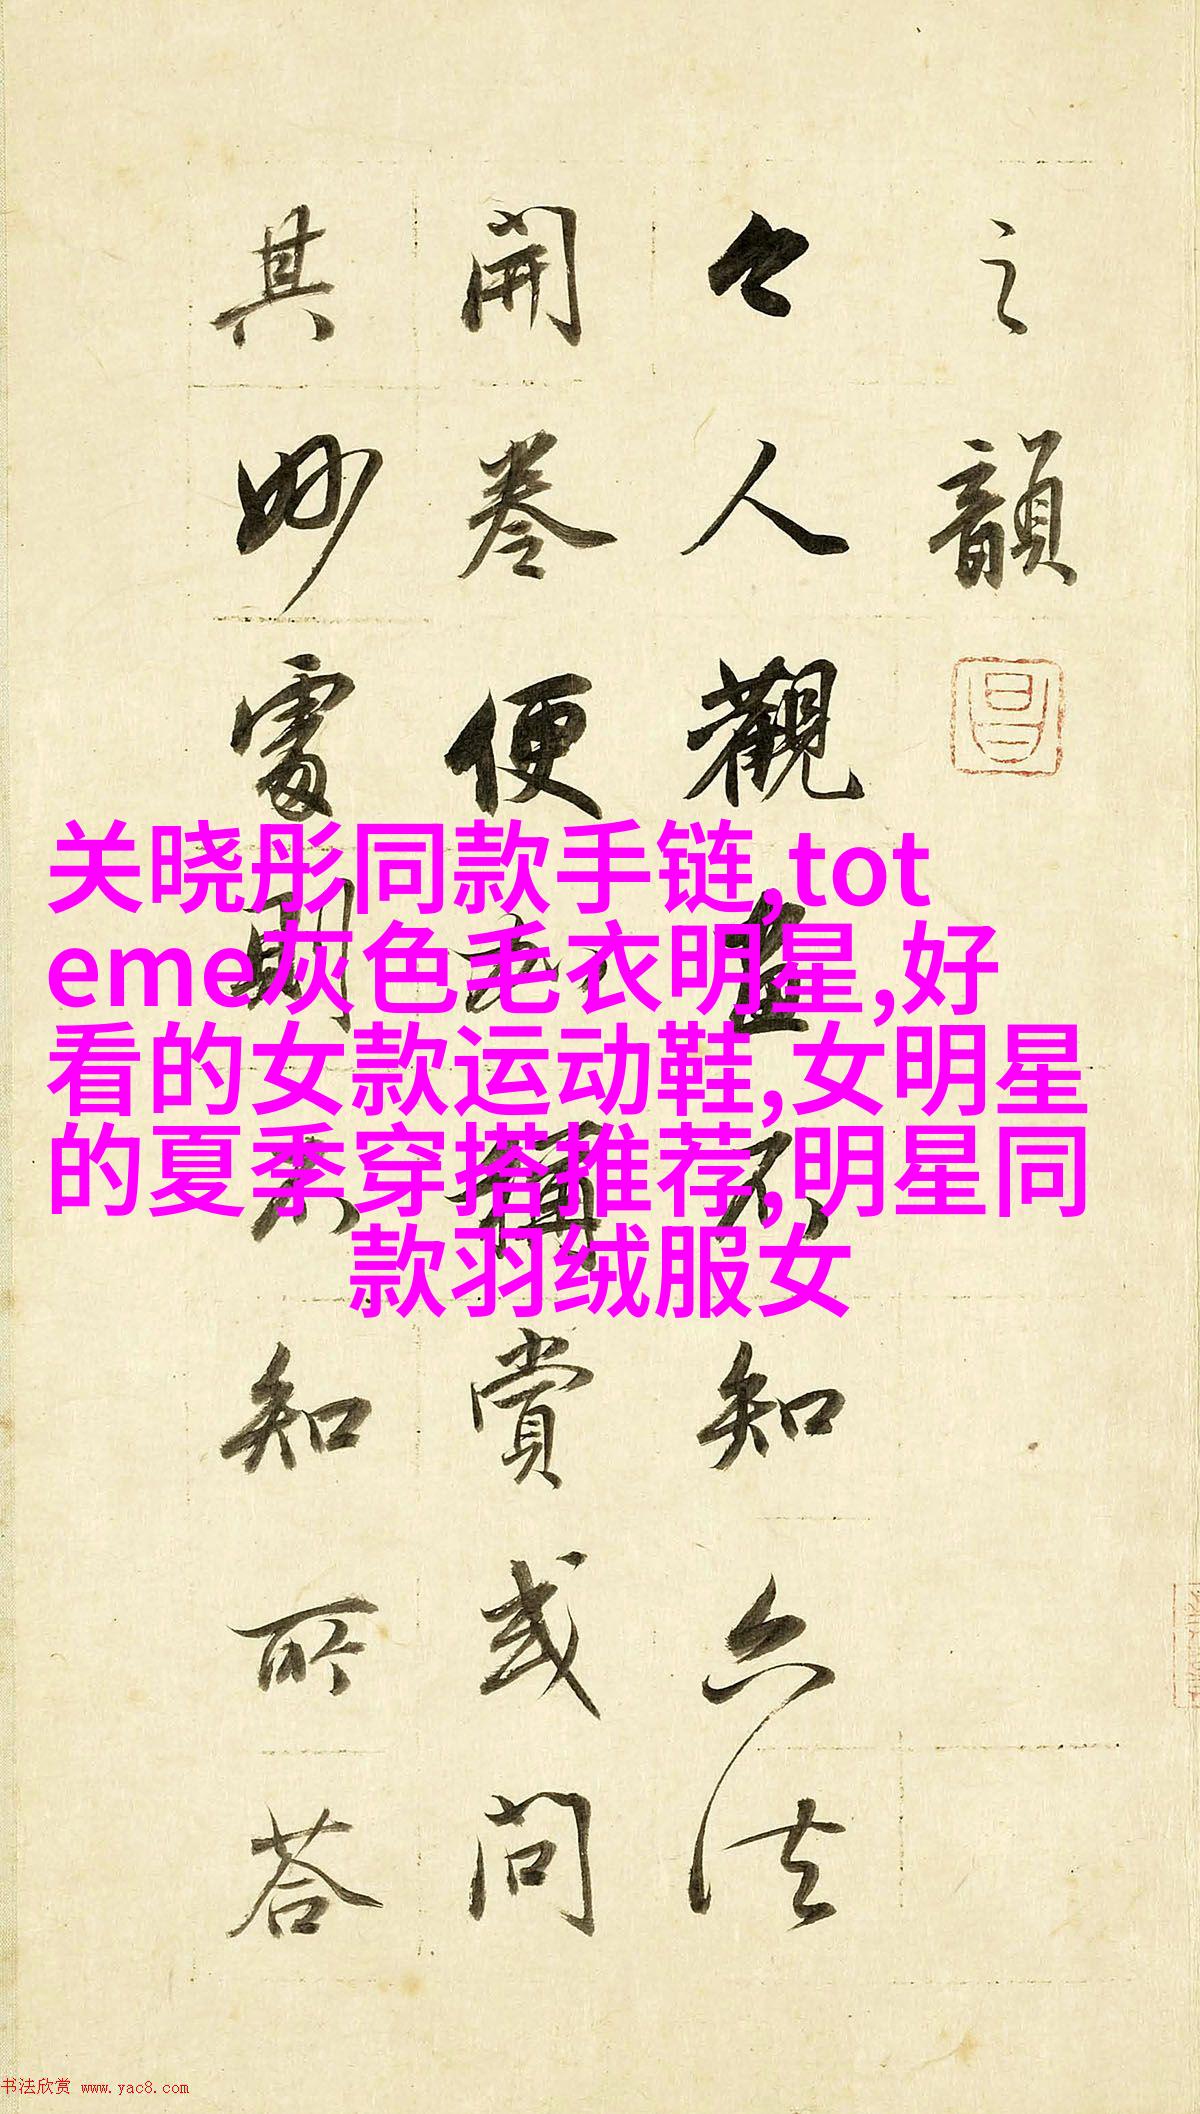 之韻
今人觀畫不知六法
開卷便加稱賞或問
其妙處則不知所荅
昌
关晓彤同款手链,tot
eme灰色毛衣明星,好
看的女款运动鞋,女明星
的夏季穿搭推荐,明星同
款羽绒服女
书法欣赏 www.yac8.com